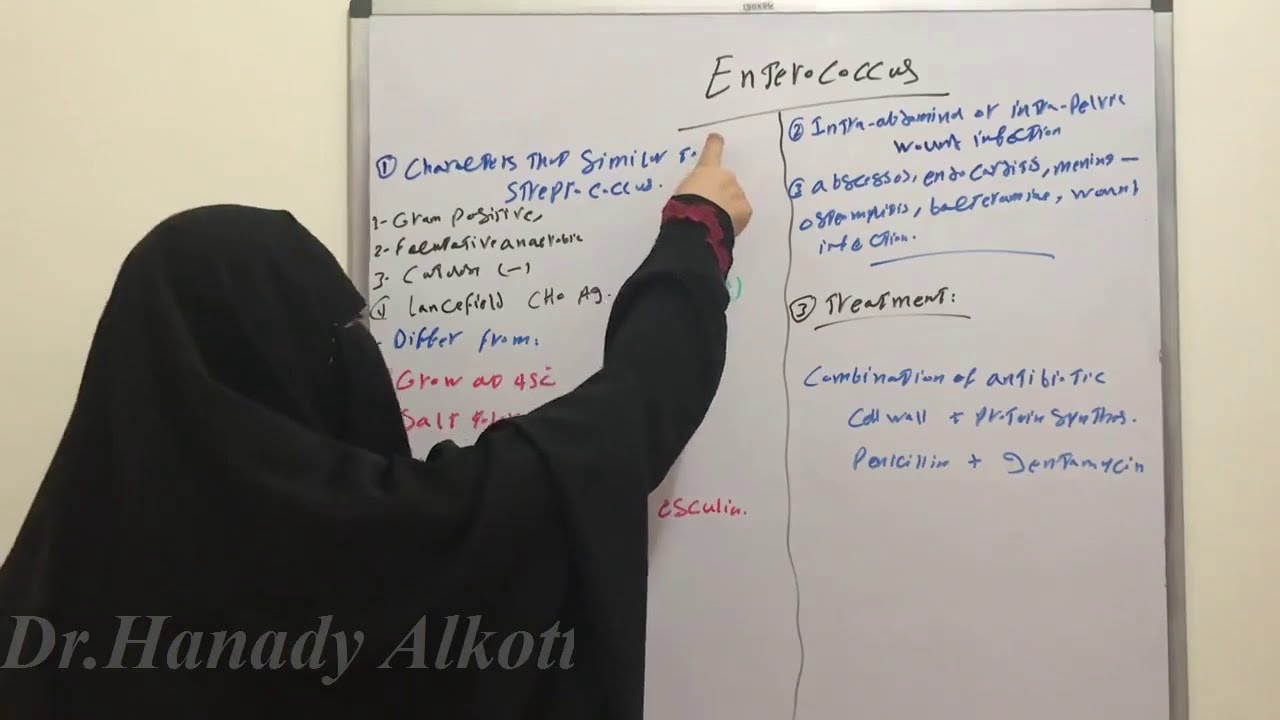 Enterococcus
① Characters that similar to
Streptococcus.
1- Gram positive,
2- Facultative anaerobic
3- (-)
④ Lancefield CHO Ag.
Differ from:
Grow at 45C
Salt
esculin.
② Intra-abdominal or intra-pelvic
wound infection
③ abscesses, endocarditis, mening-
bacteramine, wound
infection.
③ Treatment:
Combination of antibiotic
Cell wall + Protein Synthes.
Penicillin + Gentamycin
Dr.Hanady Alkoti